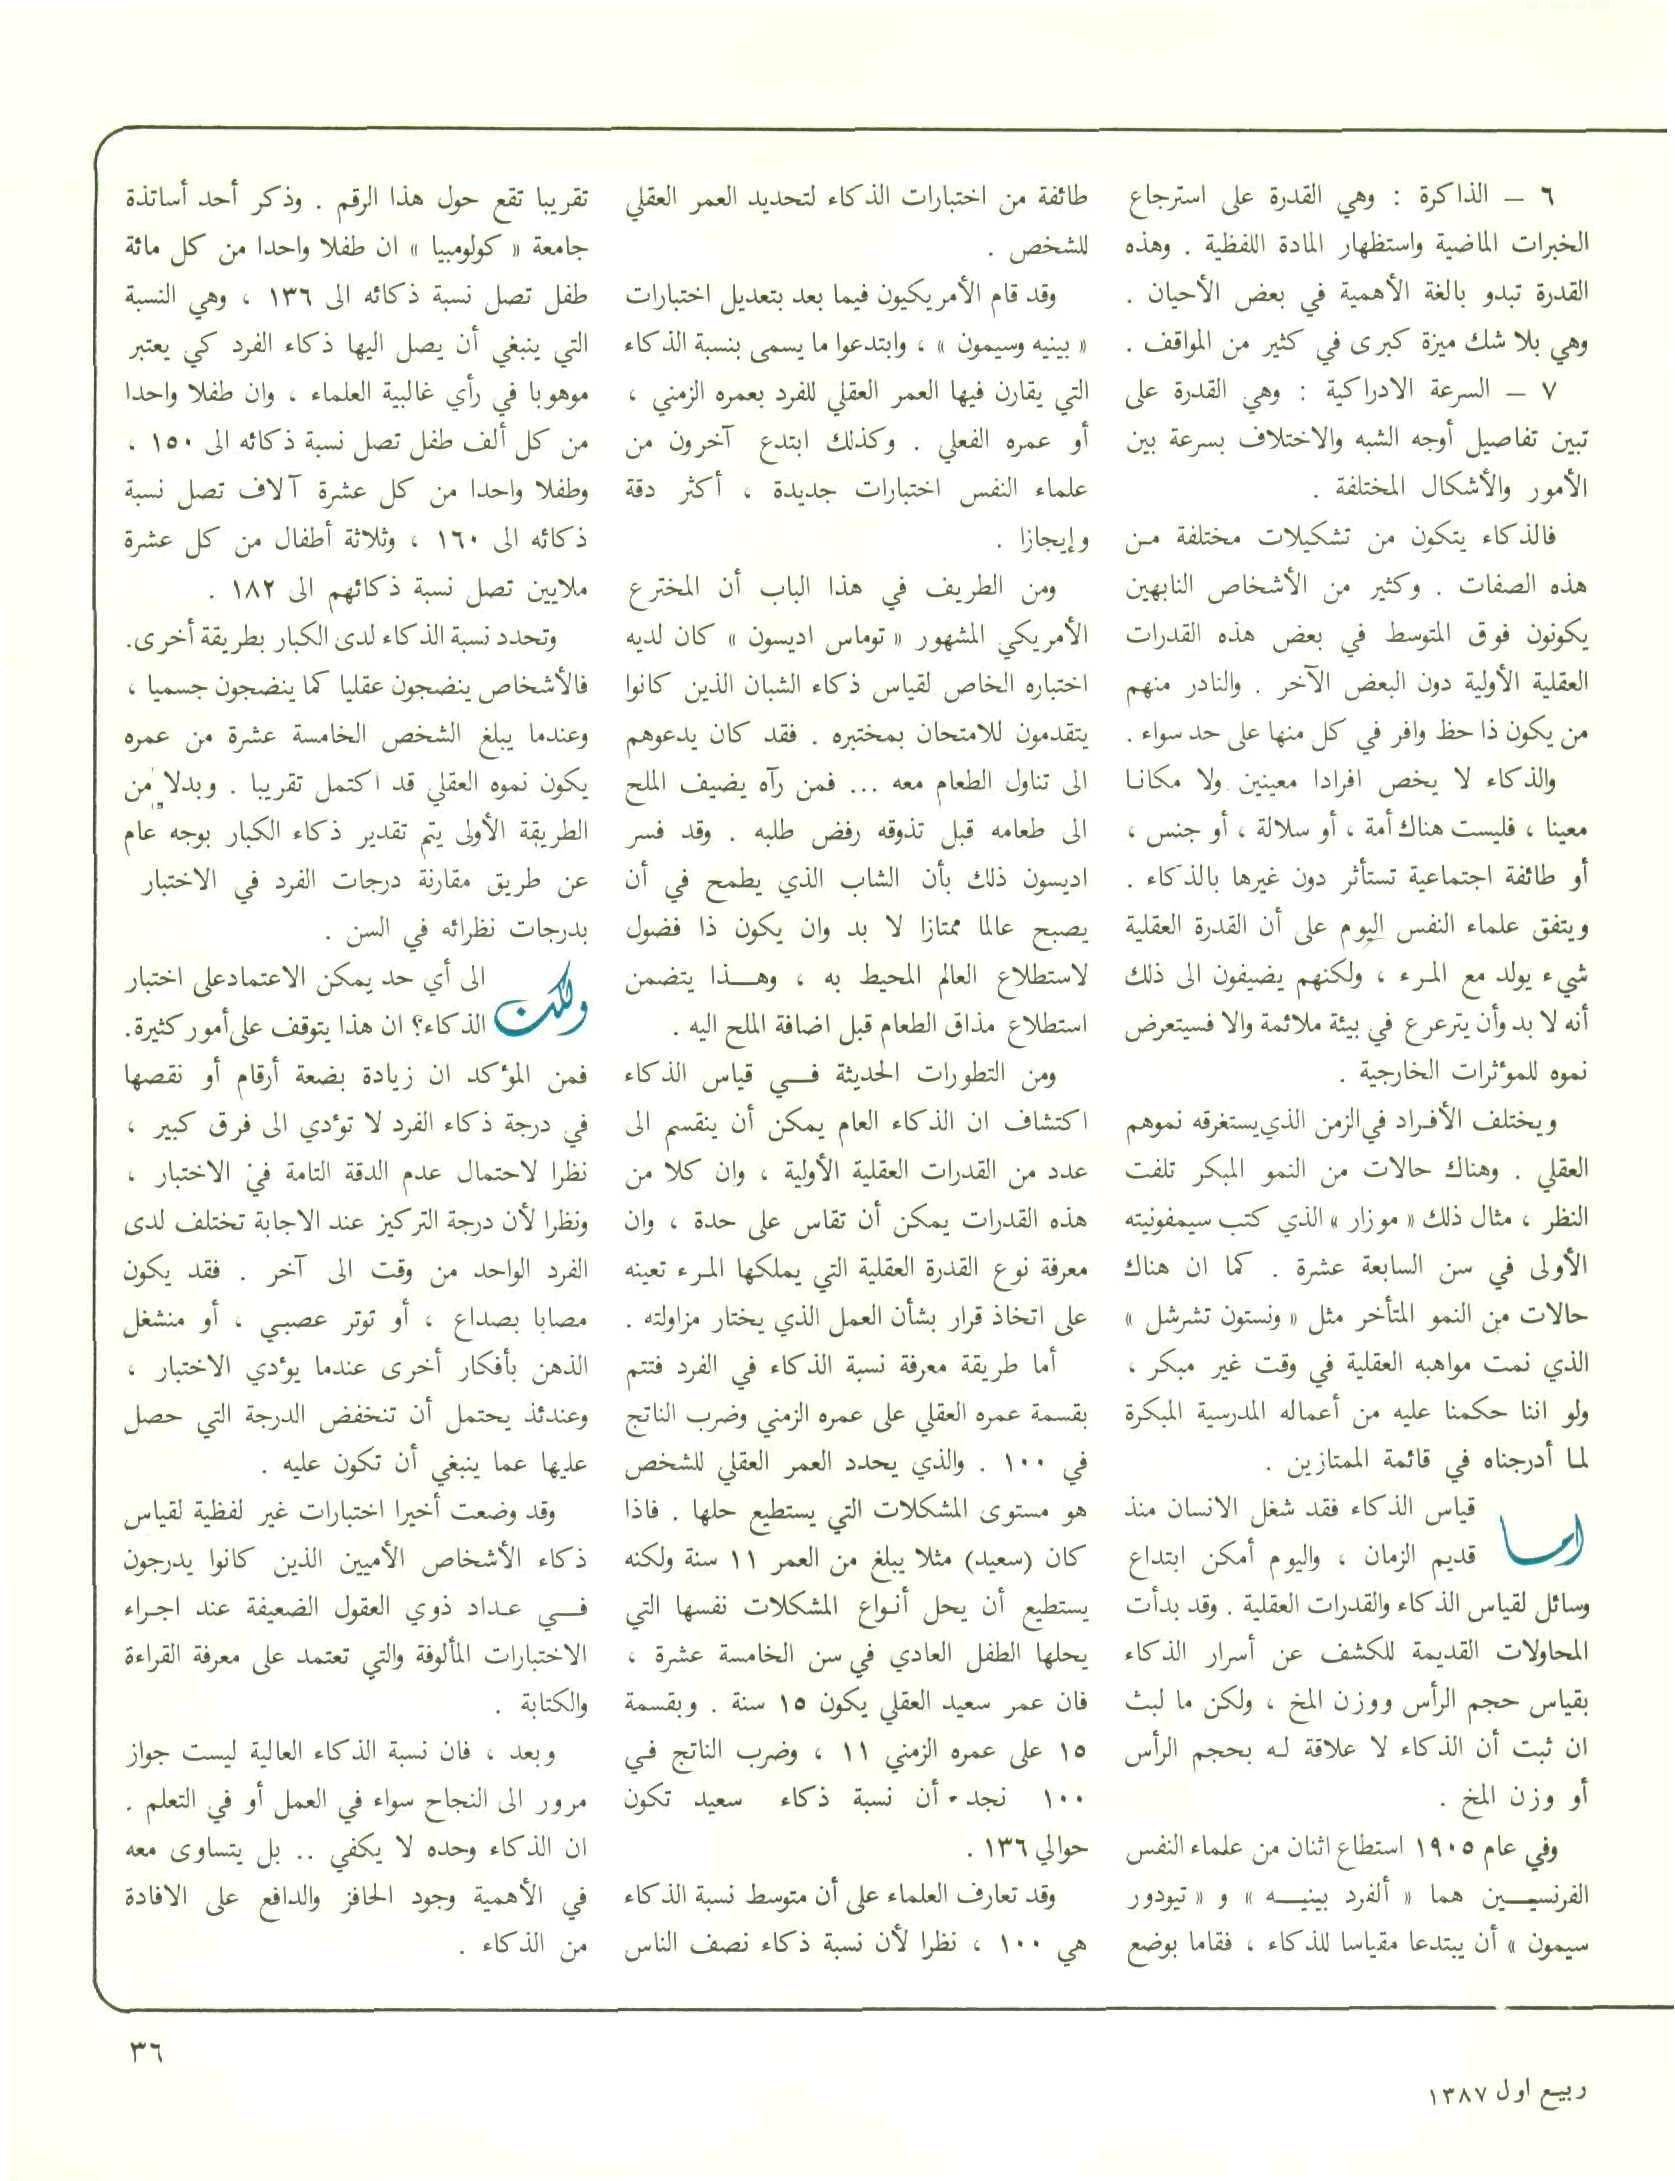 ٦ — الذاكرة : وهي القدرة على استرجاع
الخبرات الماضية واستظهار المادة اللفظية . وهذه
القدرة تبدو بالغة الأهمية في بعض الأحيان .
وهي بلا شك ميزة كبرى في كثير من المواقف .
٧ — السرعة الادراكية : وهي القدرة على
تبين تفاصيل أوجه الشبه والاختلاف بسرعة بين
الأمور والأشكال المختلفة .
فالذكاء يتكون من تشكيلات مختلفة من
هذه الصفات . وكثير من الأشخاص النابهين
يكونون فوق المتوسط في بعض هذه القدرات
العقلية الأولية دون البعض الآخر . والنادر منهم
من يكون ذا حظ وافر في كل منها على حد سواء .
والذكاء لا يخص افرادا معينين ولا مكانا
معينا ، فليست هناك أمة ، أو سلالة ، أو جنس ،
أو طائفة اجتماعية تستأثر دون غيرها بالذكاء .
ويتفق علماء النفس اليوم على أن القدرة العقلية
شيء يولد مع المرء ، ولكنهم يضيفون الى ذلك
أنه لا بد وأن يترعرع في بيئة ملائمة والا فسيتعرض
نموه للمؤثرات الخارجية .
ويختلف الأفراد في الزمن الذي يستغرقه نموهم
العقلي . وهناك حالات من النمو المبكر تلفت
النظر ، مثال ذلك « موزار » الذي كتب سيمفونيته
الأولى في سن السابعة عشرة . كما ان هناك
حالات من النمو المتأخر مثل « ونستون تشرشل »
الذي نمت مواهبه العقلية في وقت غير مبكر ،
ولو اننا حكمنا عليه من أعماله المدرسية المبكرة
لما أدرجناه في قائمة الممتازين .
اما قياس الذكاء فقد شغل الانسان منذ
قديم الزمان ، واليوم أمكن ابتداع
وسائل لقياس الذكاء والقدرات العقلية . وقد بدأت
المحاولات القديمة للكشف عن أسرار الذكاء
بقياس حجم الرأس ووزن المخ ، ولكن ما لبث
ان ثبت أن الذكاء لا علاقة له بحجم الرأس
أو وزن المخ .
وفي عام ١٩٠٥ استطاع اثنان من علماء النفس
الفرنسيين هما « ألفرد بينيه » و « تيودور
سيمون » أن يبتدعا مقياسا للذكاء ، فقاما بوضع
طائفة من اختبارات الذكاء لتحديد العمر العقلي
للشخص .
وقد قام الأمريكيون فيما بعد بتعديل اختبارات
« بينيه وسيمون » ، وابتدعوا ما يسمى بنسبة الذكاء
التي يقارن فيها العمر العقلي للفرد بعمره الزمني ،
أو عمره الفعلي . وكذلك ابتدع آخرون من
علماء النفس اختبارات جديدة ، أكثر دقة
وإيجازا .
ومن الطريف في هذا الباب أن المخترع
الأمريكي المشهور « توماس اديسون » كان لديه
اختباره الخاص لقياس ذكاء الشبان الذين كانوا
يتقدمون للامتحان بمختبره . فقد كان يدعوهم
الى تناول الطعام معه ... فمن رآه يضيف الملح
الى طعامه قبل تذوقه رفض طلبه . وقد فسر
اديسون ذلك بأن الشاب الذي يطمح في أن
يصبح عالما ممتازا لا بد وان يكون ذا فضول
لاستطلاع العالم المحيط به ، وهذا يتضمن
استطلاع مذاق الطعام قبل اضافة الملح اليه .
ومن التطورات الحديثة في قياس الذكاء
اكتشاف ان الذكاء العام يمكن أن ينقسم الى
عدد من القدرات العقلية الأولية ، وان كلا من
هذه القدرات يمكن أن تقاس على حدة ، وان
معرفة نوع القدرة العقلية التي يملكها المرء تعينه
على اتخاذ قرار بشأن العمل الذي يختار مزاولته .
أما طريقة معرفة نسبة الذكاء في الفرد فتتم
بقسمة عمره العقلي على عمره الزمني وضرب الناتج
في ١٠٠ . والذي يحدد العمر العقلي للشخص
هو مستوى المشكلات التي يستطيع حلها . فاذا
كان (سعيد) مثلا يبلغ من العمر ١١ سنة ولكنه
يستطيع أن يحل أنواع المشكلات نفسها التي
يحلها الطفل العادي في سن الخامسة عشرة ،
فان عمر سعيد العقلي يكون ١٥ سنة . وبقسمة
١٥ على عمره الزمني ١١ ، وضرب الناتج في
١٠٠ نجد أن نسبة ذكاء سعيد تكون
حوالي ١٣٦ .
وقد تعارف العلماء على أن متوسط نسبة الذكاء
هي ١٠٠ ، نظرا لأن نسبة ذكاء نصف الناس
تقريبا تقع حول هذا الرقم . وذكر أحد أساتذة
جامعة « كولومبيا » ان طفلا واحدا من كل مائة
طفل تصل نسبة ذكائه الى ١٣٦ ، وهي النسبة
التي ينبغي أن يصل اليها ذكاء الفرد كي يعتبر
موهوبا في رأي غالبية العلماء ، وان طفلا واحدا
من كل ألف طفل تصل نسبة ذكائه الى ١٥٠ ،
وطفلا واحدا من كل عشرة آلاف تصل نسبة
ذكائه الى ١٦٠ ، وثلاثة أطفال من كل عشرة
ملايين تصل نسبة ذكائهم الى ١٨٢ .
وتحدد نسبة الذكاء لدى الكبار بطريقة أخرى.
فالأشخاص ينضجون عقليا كما ينضجون جسميا ،
وعندما يبلغ الشخص الخامسة عشرة من عمره
يكون نموه العقلي قد اكتمل تقريبا . وبدلا من
الطريقة الأولى يتم تقدير ذكاء الكبار بوجه عام
عن طريق مقارنة درجات الفرد في الاختبار
بدرجات نظرائه في السن .
ولكن الى أي حد يمكن الاعتماد على اختبار
الذكاء؟ ان هذا يتوقف على أمور كثيرة.
فمن المؤكد ان زيادة بضعة أرقام أو نقصها
في درجة ذكاء الفرد لا تؤدي الى فرق كبير ،
نظرا لاحتمال عدم الدقة التامة في الاختبار ،
ونظرا لأن درجة التركيز عند الاجابة تختلف لدى
الفرد الواحد من وقت الى آخر . فقد يكون
مصابا بصداع ، أو توتر عصبي ، أو منشغل
الذهن بأفكار أخرى عندما يؤدي الاختبار ،
وعندئذ يحتمل أن تنخفض الدرجة التي حصل
عليها عما ينبغي أن تكون عليه .
وقد وضعت أخيرا اختبارات غير لفظية لقياس
ذكاء الأشخاص الأميين الذين كانوا يدرجون
في عداد ذوي العقول الضعيفة عند اجراء
الاختبارات المألوفة والتي تعتمد على معرفة القراءة
والكتابة .
وبعد ، فان نسبة الذكاء العالية ليست جواز
مرور الى النجاح سواء في العمل أو في التعلم .
ان الذكاء وحده لا يكفي .. بل يتساوى معه
في الأهمية وجود الحافز والدافع على الافادة
من الذكاء .
٣٦
ربيع اول ١٣٨٧